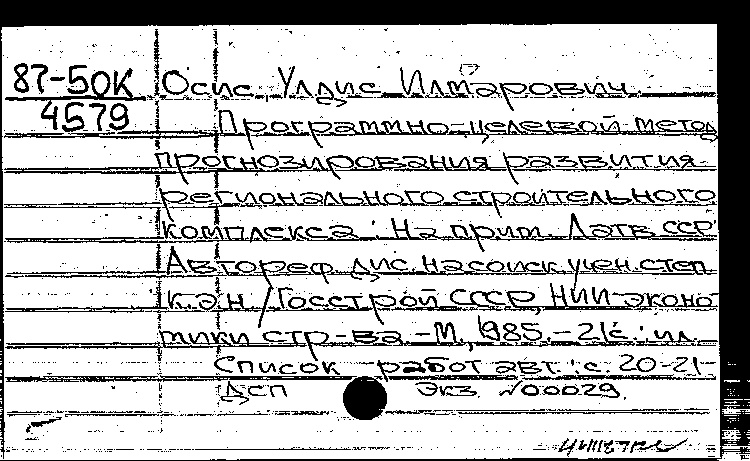 87-50К Осис, Улдис Илмарович.
4579 Программно-целевой метод
прогнозирования развития
регионального строительного
комплекса : На прим. Латв ССР
Автореф дис. на соиск учен. степ
к.э.н / Госстрой СССР, НИИ эконо-
мики стр-ва. - М, 1985. - 21с : ил.
Список работ авт.: с. 20-21-
ДСП Экз. №00029.